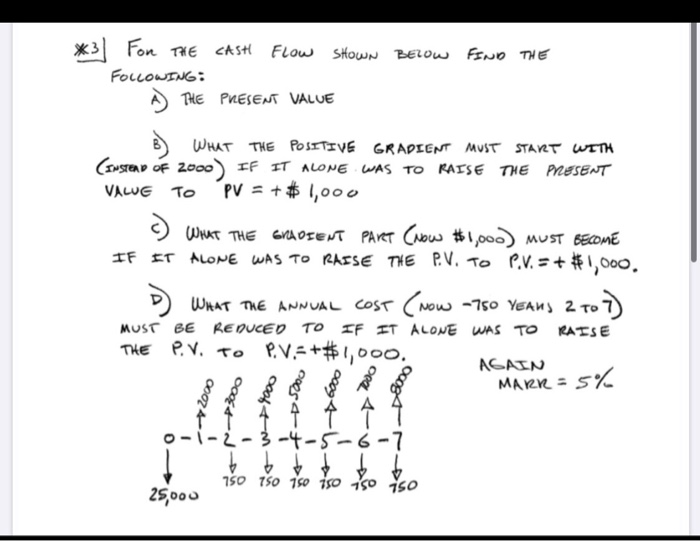 *3 FOR THE CASH FLOW SHOWN BELOW FIND THE
FOLLOWING:
A) THE PRESENT VALUE
B) WHAT THE POSITIVE GRADIENT MUST START WITH
(INSTEAD OF 2000) IF IT ALONE WAS TO RAISE THE PRESENT
VALUE TO PV = +$1,000
C) WHAT THE GRADIENT PART (NOW $1,000) MUST BECOME
IF IT ALONE WAS TO RAISE THE P.V. TO P.V. = +$1,000.
D) WHAT THE ANNUAL COST (NOW -750 YEARS 2 TO 7)
MUST BE REDUCED TO IF IT ALONE WAS TO RAISE
THE P.V. TO P.V.=+$1,000.
AGAIN
MARR = 5%
2000 3000 4000 5000 6000 7000 8000
0-1-2-3-4-5-6-7
750 750 750 750 750 750
25,000